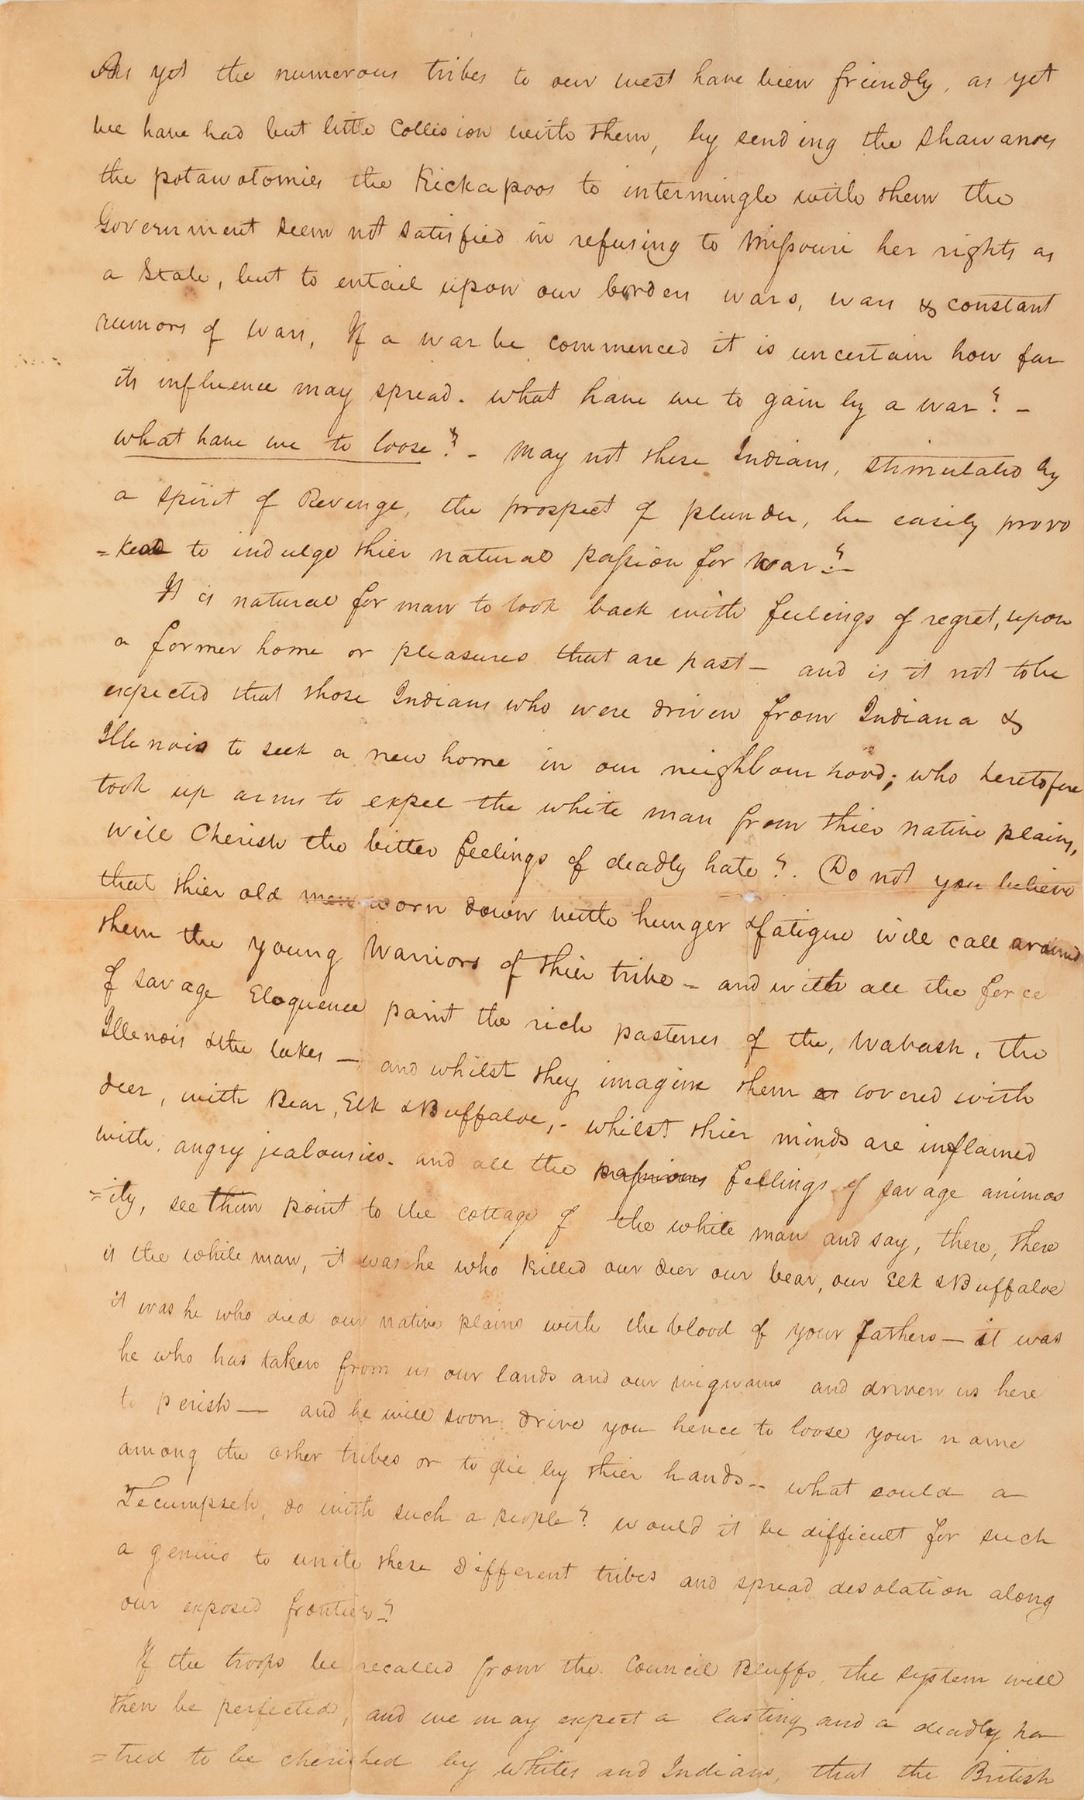 As yet the numerous tribes to our west have been friendly, as yet
we have had but little Collision with them, by sending the Shawanoes
the potawotomies the Kickapoos to intermingle with them the
Government seem not satisfied in refusing to Missouri her rights as
a State, but to entail upon our borders wars, wars & constant
rumors of wars, If a war be commenced it is uncertain how far
its influence may spread. what have we to gain by a war? -
what have we to loose? - May not these Indians, stimulated by
a spirit of Revenge, the prospect of plunder, be easily provo
=ked to indulge thier natural passion for war? -
It is natural for man to look back with feelings of regret, upon
a former home or pleasures that are past - and is it not to be
expected that those Indians who were driven from Indiana &
Illenois to seek a new home in our neighbourhood; who heretofore
took up arms to expel the white man from thier native plains,
will Cherish the bitter feelings of deadly hate?. Do not you believe
that thier old men worn down with hunger & fatigue will call around
them the young Warriors of thier tribe - and with all the force
of savage Eloquence paint the rich pastures of the, Wabash, the
Illenois & the lakes - and whilst they imagine them as covered with
deer, with Bear, Elk & Buffaloe, - whilst thier minds are inflamed
with angry jealousies - and all the passions feelings of savage animos
=ity, see them point to the cottage of the white man and say, there, there
is the white man, it was he who killed our deer our bear, our Elk & Buffaloe
it was he who died our native plains with the blood of your fathers - it was
he who has taken from us our lands and our wigwams and driven us here
to perish - and he will soon drive you hence to loose your name
among the other tribes or to die by thier hands - what could a
Tecumpseh, do with such a people? would it be difficult for such
a genius to unite these different tribes and spread desolation along
our exposed frontier?
If the troops be recalled from the Council Bluffs, the system will
then be perfected, and we may expect a lasting and a deadly ha
=tred to be cherished by whites and Indians, that the British